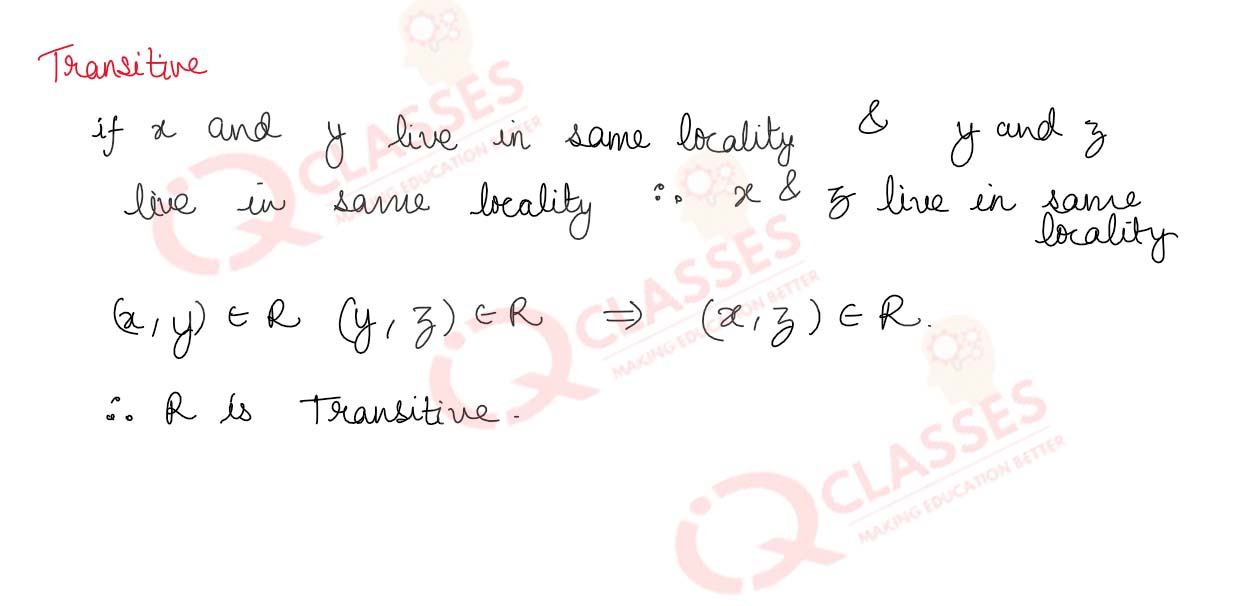 Transitive
if x and y live in same locality & y and z
live in same locality ∴ x & z live in same
locality
(x, y) ∈ R (y, z) ∈ R ⇒ (x, z) ∈ R.
∴ R is Transitive.
IQ CLASSES
MAKING EDUCATION BETTER
IQ CLASSES
MAKING EDUCATION BETTER
IQ CLASSES
MAKING EDUCATION BETTER